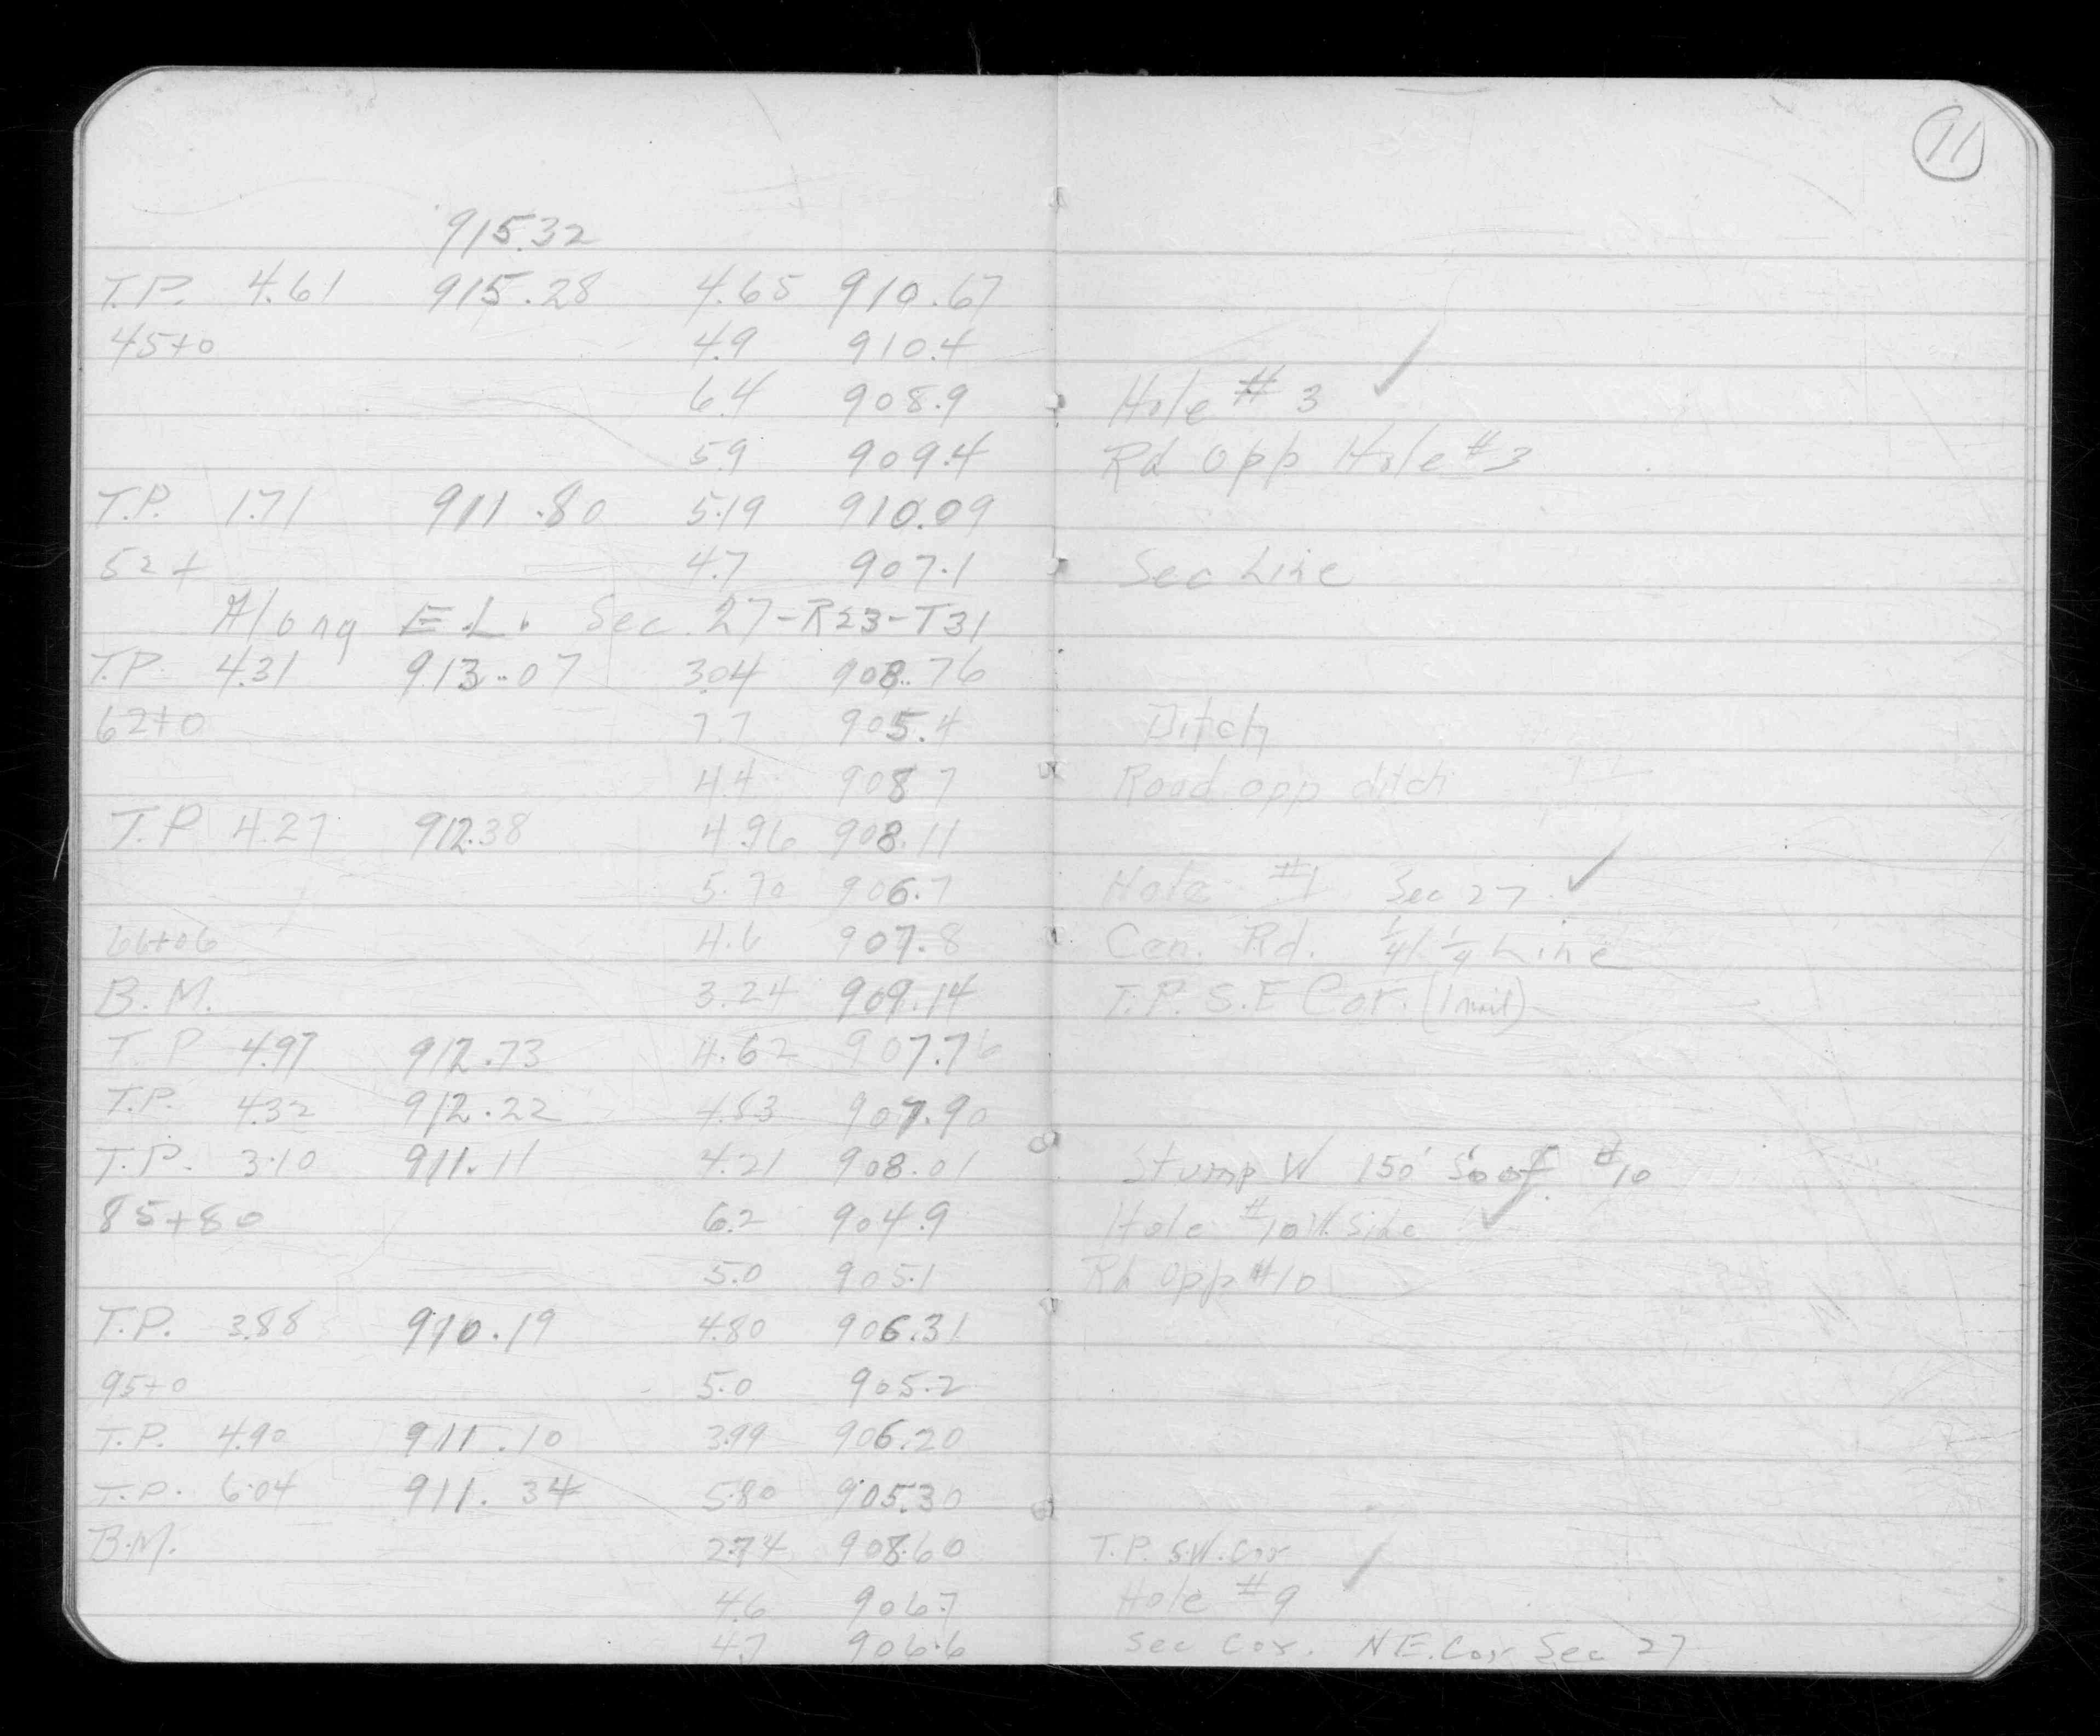 11
915.32
T.P. 4.61 915.28 4.65 910.67
45+0 4.9 910.4
6.4 908.9 Hole # 3 ✓
5.9 909.4 Rd opp Hole #3
T.P. 1.71 911.80 5.19 910.09
52+ 4.7 907.1 Sec Line
Along E.L. Sec. 27-R23-T31
T.P. 4.31 913.07 3.04 908.76
62+0 7.7 905.4 Ditch
4.4 908.7 Road opp ditch
T.P. 4.27 912.38 4.96 908.11
5.70 906.7 Hole #1 Sec 27 ✓
66+06 4.6 907.8 Cen. Rd. 1/4 1/4 Line
B.M. 3.24 909.14 T.P. S.E Cor. (1 nail)
T.P 4.97 912.73 4.62 907.76
T.P. 4.32 912.22 4.83 907.90
T.P. 3.10 911.11 4.21 908.01 Stump W 150' So of #10
85+80 6.2 904.9 Hole #10 W. Side ✓
5.0 905.1 Rd opp #10
T.P. 3.88 910.19 4.80 906.31
95+0 5.0 905.2
T.P. 4.90 911.10 3.99 906.20
T.P. 6.04 911.34 5.80 905.30
B.M. 2.74 908.60 T.P. S.W. Cor
4.6 906.7 Hole #9 ✓
4.7 906.6 Sec Cor. N.E. Cor Sec 27